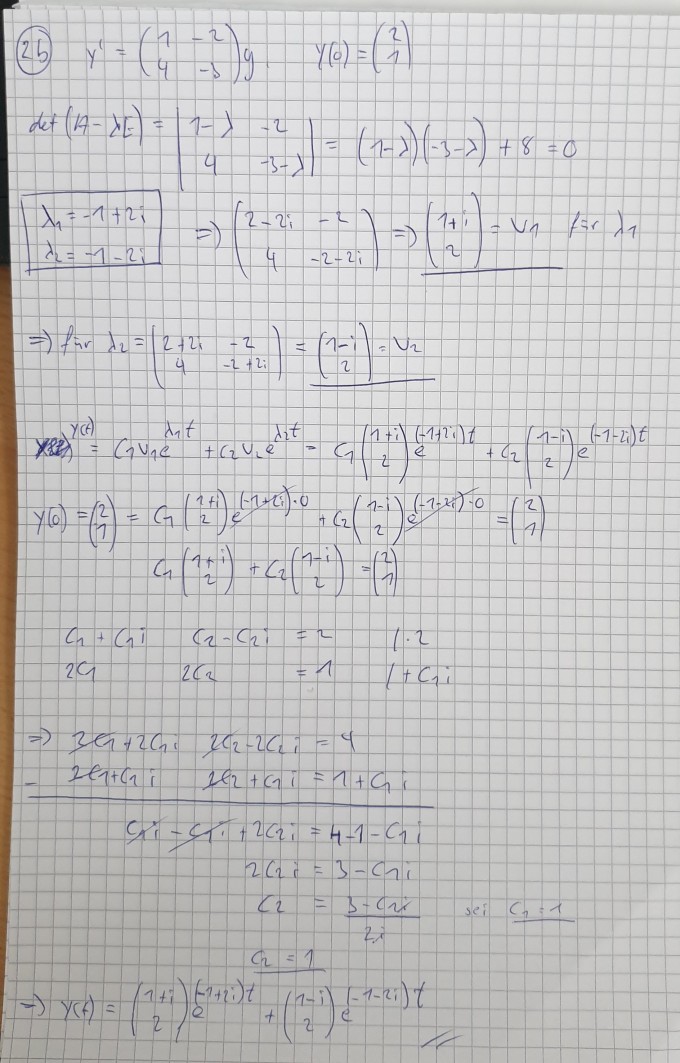 25) y' = (1 -2; 4 -3) y, y(0) = (2; 1)
det(A-λE) = |1-λ -2; 4 -3-λ| = (1-λ)(-3-λ) + 8 = 0
λ1 = -1+2i
λ2 = -1-2i
=> (2-2i -2; 4 -2-2i) => (1+i; 2) = v1 für λ1
=> für λ2 = (2+2i -2; 4 -2+2i) = (1-i; 2) = v2
y(t) = C1 v1 e^(λ1t) + C2 v2 e^(λ2t) = C1 (1+i; 2) e^((-1+2i)t) + C2 (1-i; 2) e^((-1-2i)t)
y(0) = (2; 1) = C1 (1+i; 2) e^((-1+2i)·0) + C2 (1-i; 2) e^((-1-2i)·0) = (2; 1)
C1 (1+i; 2) + C2 (1-i; 2) = (2; 1)
C1 + C1i C2 - C2i = 2 /·2
2C1 2C2 = 1 /+C1i
=> 2C1+2C1i 2C2-2C2i = 4
- 2C1+C1i 2C2+C1i = 1+C1i
C1i - C1i + 2C2i = 4-1-C1i
2C2i = 3-C1i
C2 = (3-C1i)/2i sei C1 = 1
C2 = 1
=> y(t) = (1+i; 2) e^((-1+2i)t) + (1-i; 2) e^((-1-2i)t)